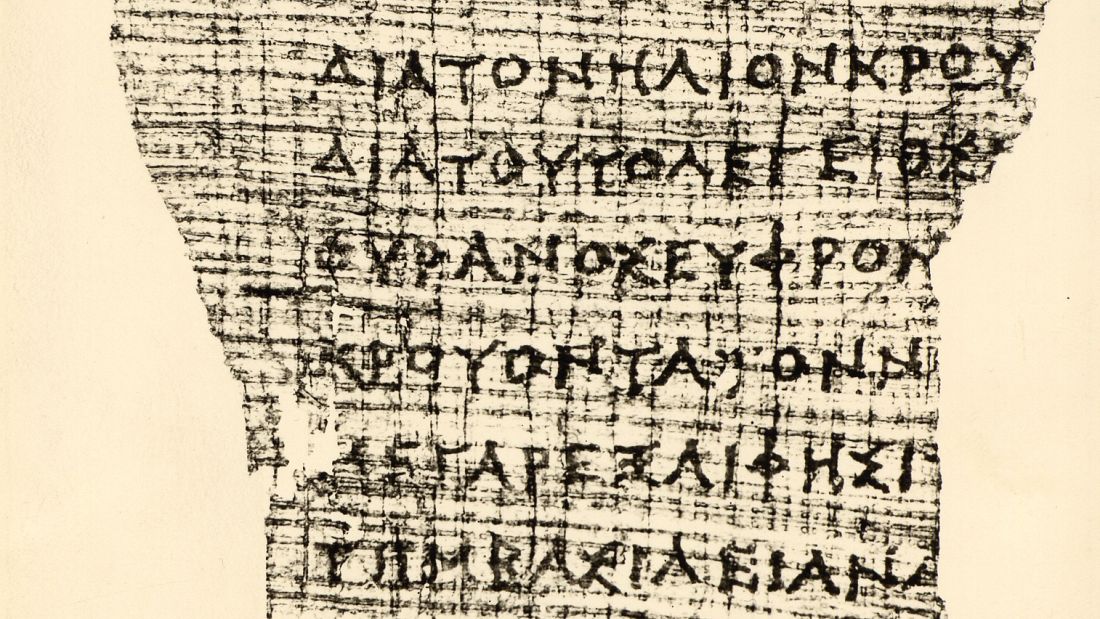 ΔΙΑΤΟΝΗΛΙΟΝΚΡΟΥ
ΔΙΑΤΟΥΤΟΛΕΓΕΙΟΣ
ΟΥΡΑΝΟΣΕΥΦΡΟΝ
ΚΡΟΥΟΝΤΑΤΟΝΝ
ΜΕΓΑΡΕΞΑΙΦΗΣΙ
ΤΗΜΒΑΣΙΛΕΙΑΝΑ